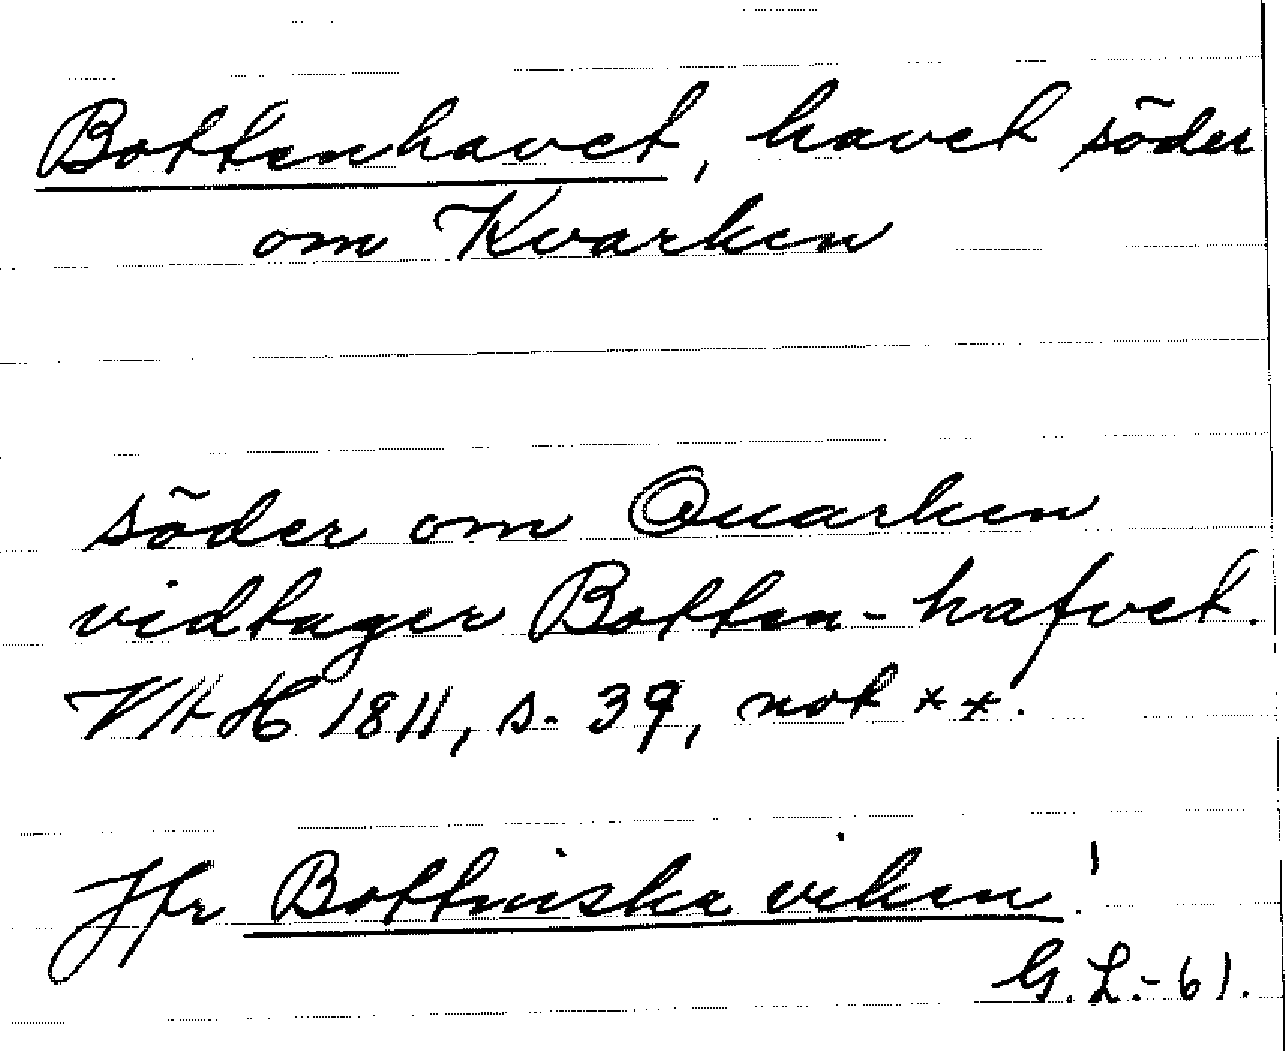 Bottenhavet, havet söder
om Kvarken
söder om Quarken
vidtager Botten-hafvet.
VAH 1811, s. 39, not **.
Jfr Bottniska viken!
G. L. - 61.